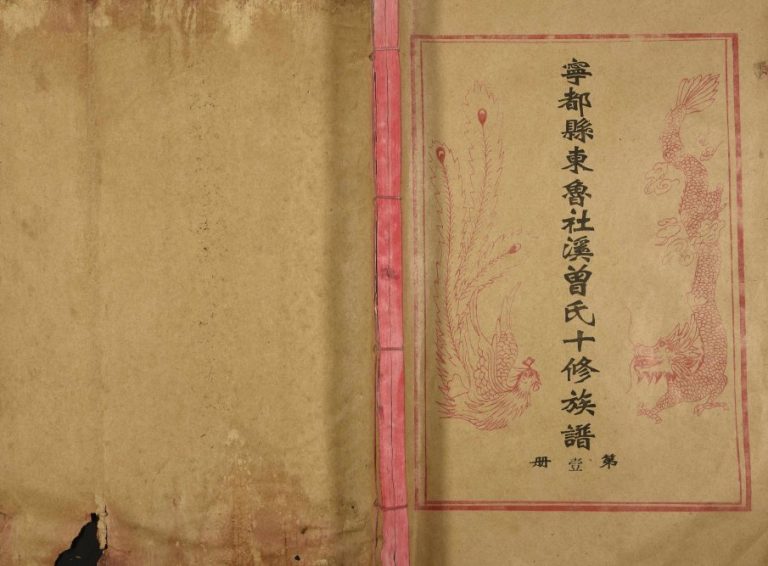 寧都縣東魯社溪曾氏十修族譜
第壹册